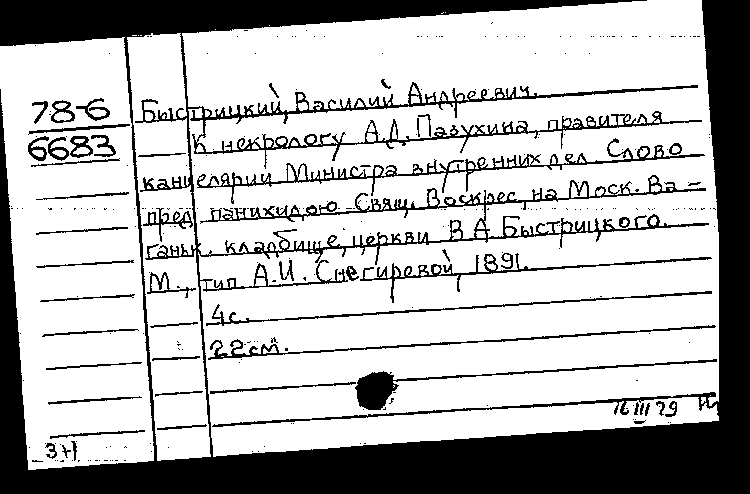 78-6
6683
Быстрицкий, Василий Андреевич.
К некрологу А.Д. Пазухина, правителя
канцелярии Министра внутренних дел. Слово
пред панихидою Свящ. Воскрес, на Моск. Ва-
ганьк. кладбище, церкви В.А. Быстрицкого.
М., тип. А.И. Снегиревой, 1891.
4с.
22см.
16 III 79
3н